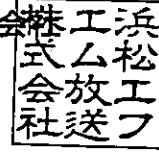 浜松エフ
エム放送
株式会社
会